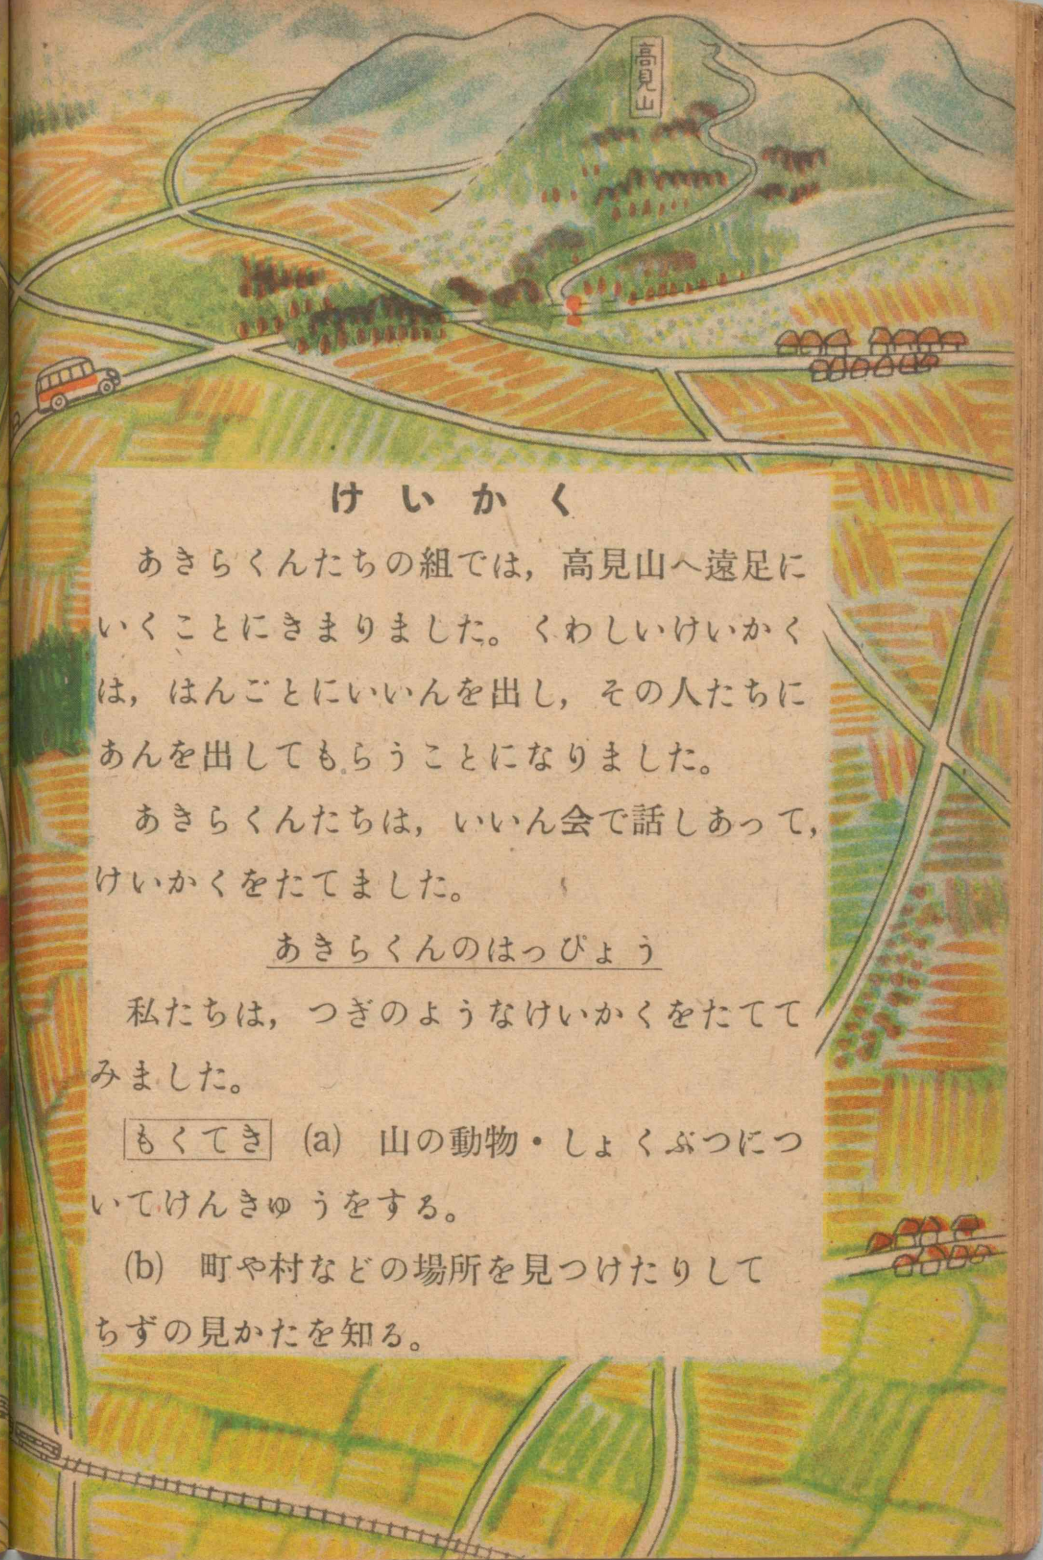 高見山
けいかく
あきらくんたちの組では，高見山へ遠足に
いくことにきまりました。くわしいけいかく
は，はんごとにいいんを出し，その人たちに
あんを出してもらうことになりました。
あきらくんたちは，いいん会で話しあって，
けいかくをたてました。
あきらくんのはっぴょう
私たちは，つぎのようなけいかくをたてて
みました。
もくてき (a) 山の動物・しょくぶつにつ
いてけんきゅうをする。
(b) 町や村などの場所を見つけたりして
ちずの見かたを知る。